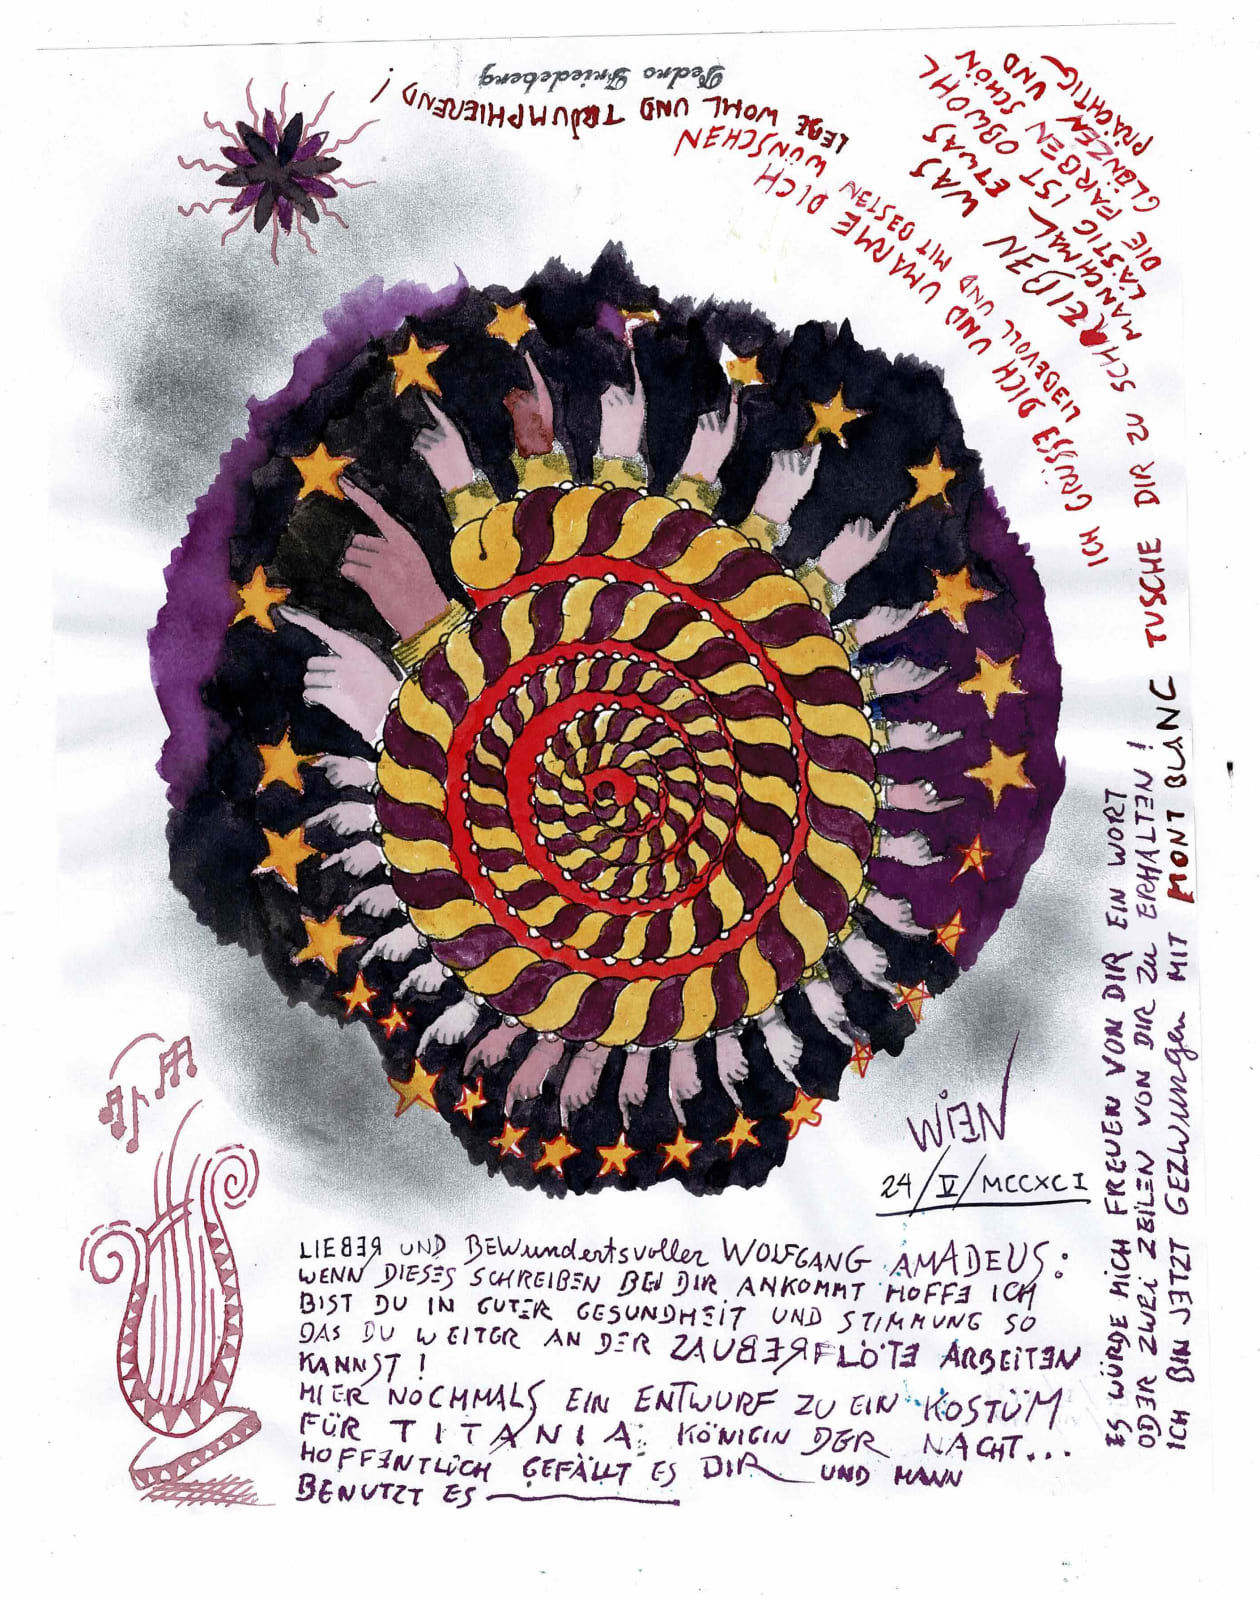 WIEN
24/V/MCCXCI
LIEBER UND BEWUNDERTSVOLLER WOLFGANG AMADEUS:
WENN DIESES SCHREIBEN BEI DIR ANKOMMT HOFFE ICH
BIST DU IN GUTER GESUNDHEIT UND STIMMUNG SO
DAS DU WEITER AN DER ZAUBERFLÖTE ARBEITEN
KANNST!
HIER NOCHMALS EIN ENTWURF ZU EIN KOSTÜM
FÜR TITANIA: KÖNIGIN DER NACHT...
HOFFENTLICH GEFÄLLT ES DIR UND MANN
BENUTZT ES
ES WÜRDE MICH FREUEN VON DIR EIN WORT
ODER ZWEI ZEILEN VON DIR ZU ERHALTEN!
ICH BIN JETZT GEZWUNGEN MIT MONT BLANC TUSCHE DIR ZU SCHREIBEN WAS
MANCHMAL ETWAS
LÄSTIG IST OBWOHL
DIE FARBEN SCHÖN
GLÄNZEN UND
PRÄCHTIG
ICH GRÜSSE DICH UND UMARME DICH
LIEBEVOLL UND MIT BESTEN
WÜNSCHEN
LEBE WOHL UND TRIUMPHIEREND!
Pedro Friedeberg